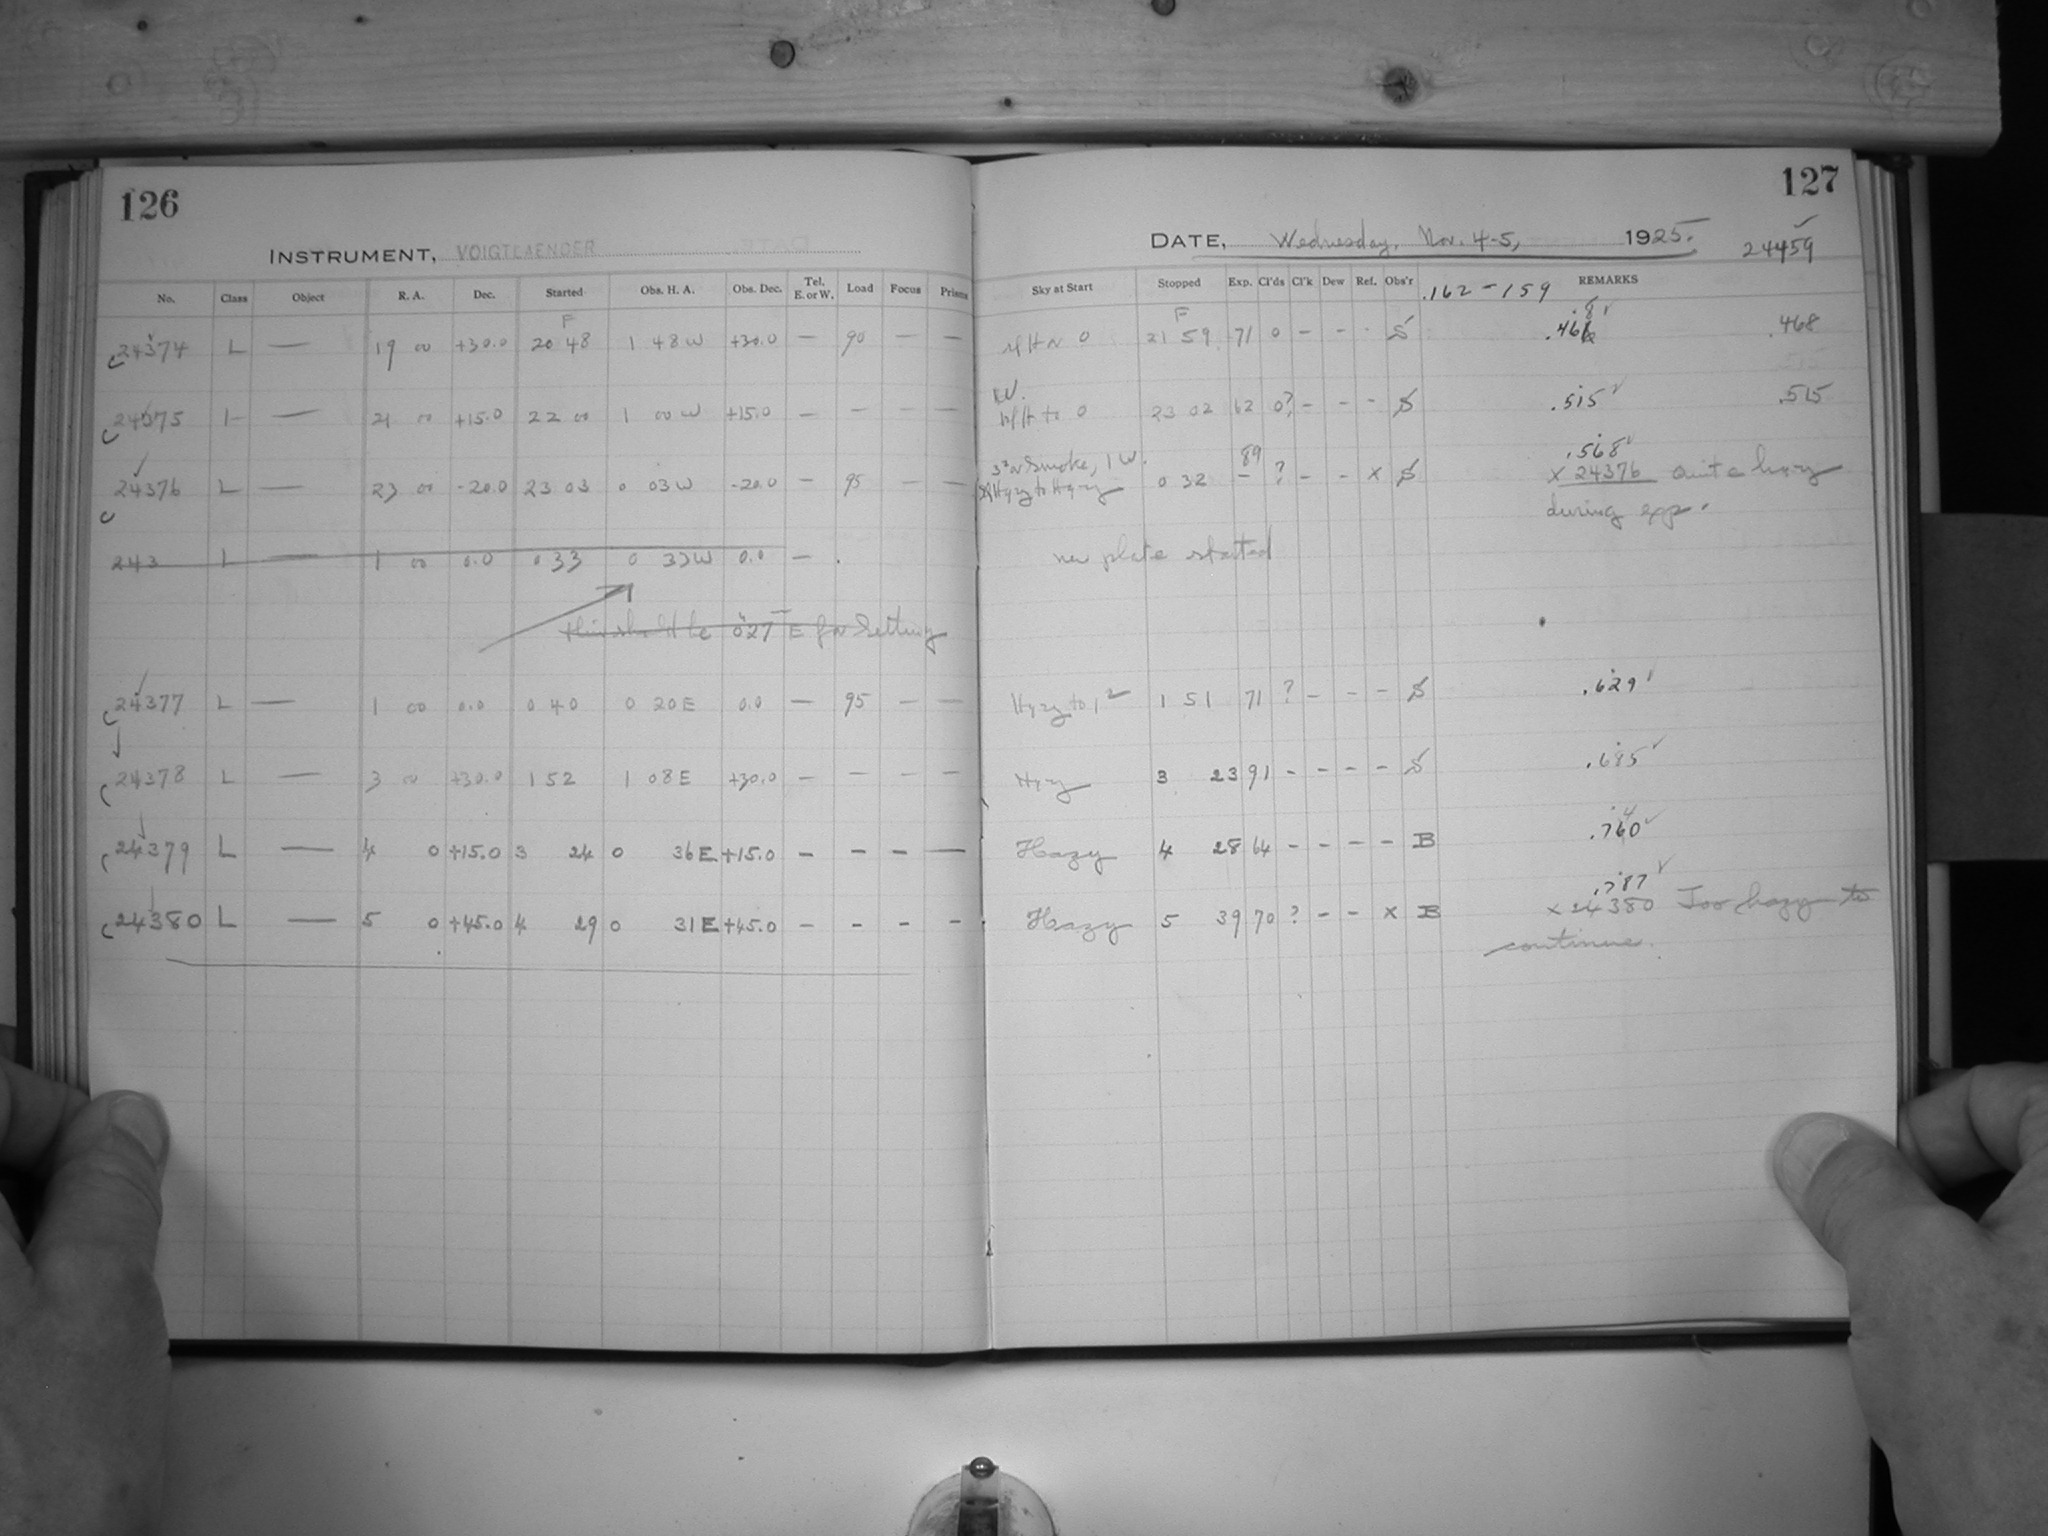 126
INSTRUMENT, VOIGTLAENDER
No. Class Object R. A. Dec. Started Obs. H. A. Obs. Dec. Tel. E. or W. Load Focus Prisms
F
24374 L — 19 00 +30.0 20 48 1 48 W +30.0 — 90 — —
24375 L — 21 00 +15.0 22 00 1 00 W +15.0 — — — —
24376 L — 23 00 -20.0 23 03 0 03 W -20.0 — 95 — —
243 L — 1 00 0.0 0 33 0 33 W 0.0 —
this should be 0 27 E for Setting
24377 L — 1 00 0.0 0 40 0 20 E 0.0 — 95 — —
24378 L — 3 00 +30.0 1 52 1 08 E +30.0 — — — —
24379 L — 4 0 +15.0 3 24 0 36 E +15.0 — — — —
24380 L — 5 0 +45.0 4 29 0 31 E +45.0 — — — —
127
DATE, Wednesday, Nov. 4-5, 1925. 24459
Sky at Start Stopped Exp. Cl'ds Cl'k Dew Ref. Obs'r REMARKS
.162 - 159
F
0 21 59 71 0 — — S .468
W.
to 0 23 02 62 0? — — — S .515 .515
3 2 N Smoke, 1 W. 89 .568
Hazy to Hazy 0 32 — ? — — x S x 24376 Quite hazy
during exp.
new plate started
Hazy to 1 2 1 51 71 ? — — — S .629
Hazy 3 23 91 — — — — S .685
Hazy 4 28 64 — — — — B .740
.787
Hazy 5 39 70 ? — — x B x 24380 Too hazy to
continue.